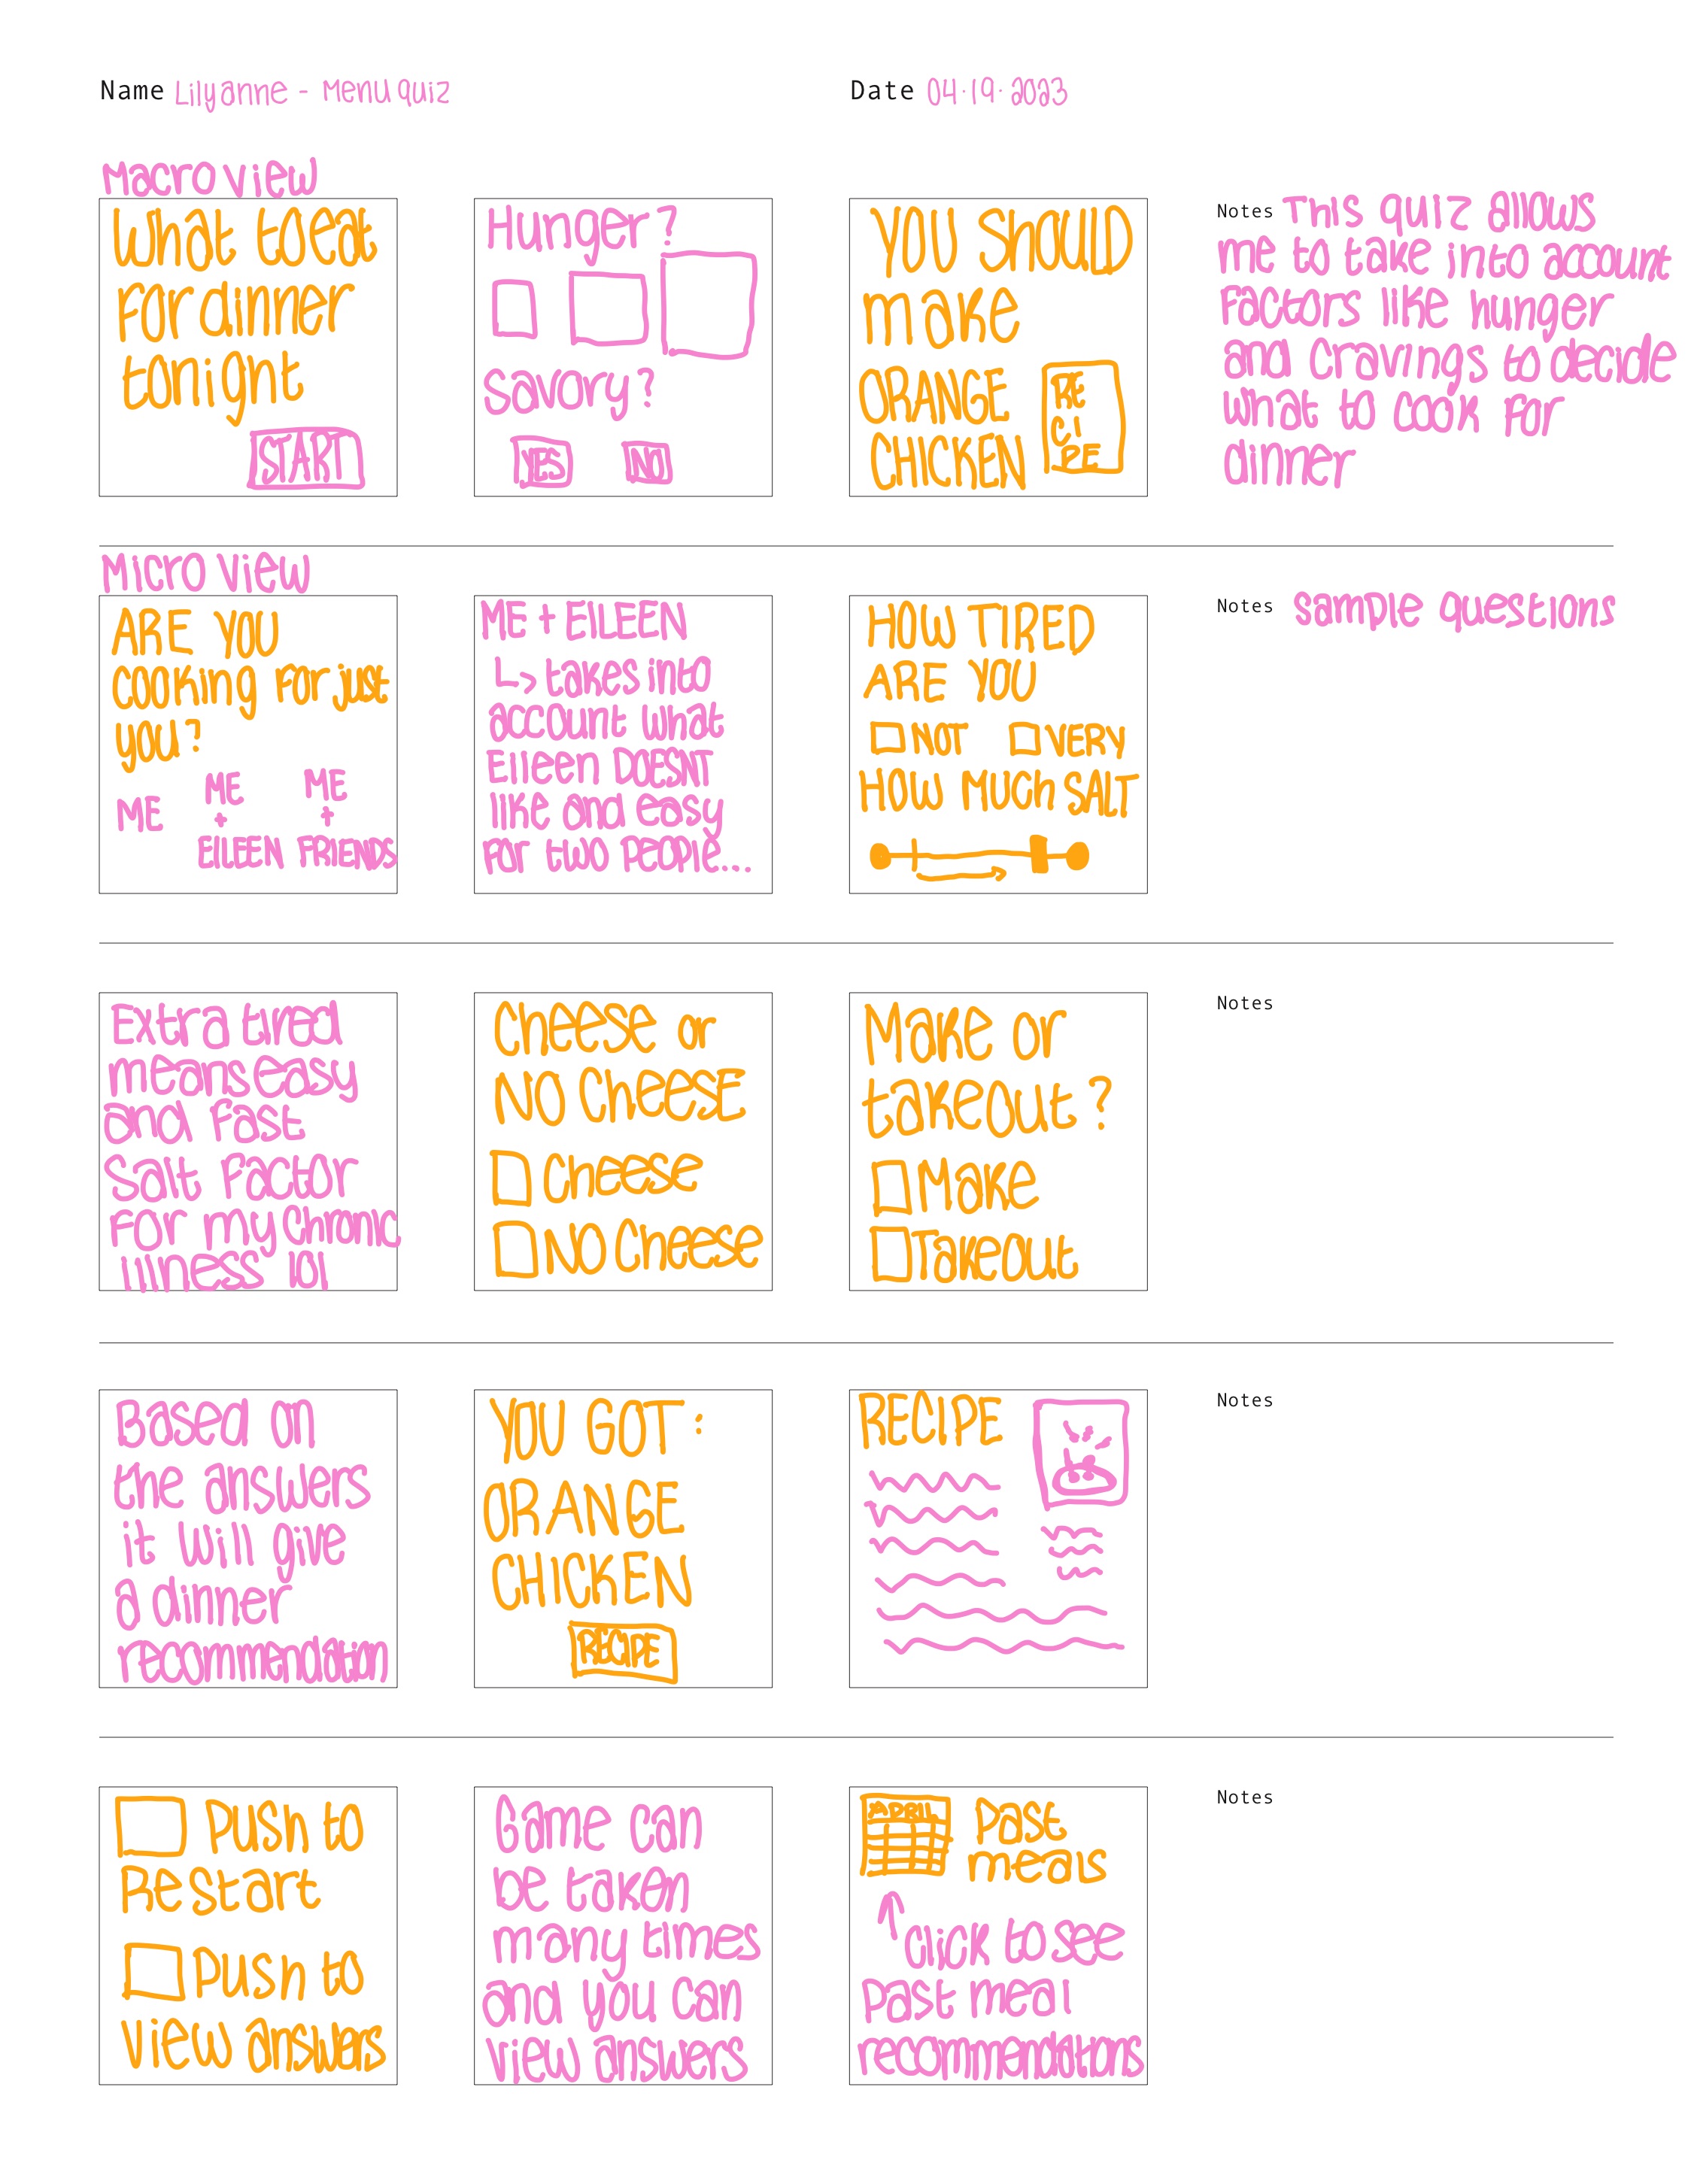 Name Lilyanne - Menu quiz
Date 04.19.2023
Macro view
What to eat
for dinner
tonight
START
Hunger?
Savory?
YES NO
YOU SHOULD
make
ORANGE
CHICKEN
RE
CI
PE
Notes This quiz allows
me to take into account
factors like hunger
and cravings to decide
what to cook for
dinner
Micro view
ARE YOU
cooking for just
you?
ME
ME
+
EILEEN
ME
+
FRIENDS
ME + EILEEN
↳ takes into
account what
Eileen DOESNT
like and easy
for two people....
HOW TIRED
ARE YOU
NOT VERY
HOW MUCH SALT
Notes sample questions
Extra tired
means easy
and fast
Salt factor
for my chronic
illness lol
Cheese or
NO Cheese
Cheese
NO Cheese
Make or
takeout?
Make
Takeout
Notes
Based on
the answers
it will give
a dinner
recommendation
YOU GOT:
ORANGE
CHICKEN
RECIPE
RECIPE
Notes
Push to
Restart
Push to
View answers
Game can
be taken
many times
and you can
view answers
APRIL
Past
meals
↑ click to see
past meal
recommendations
Notes